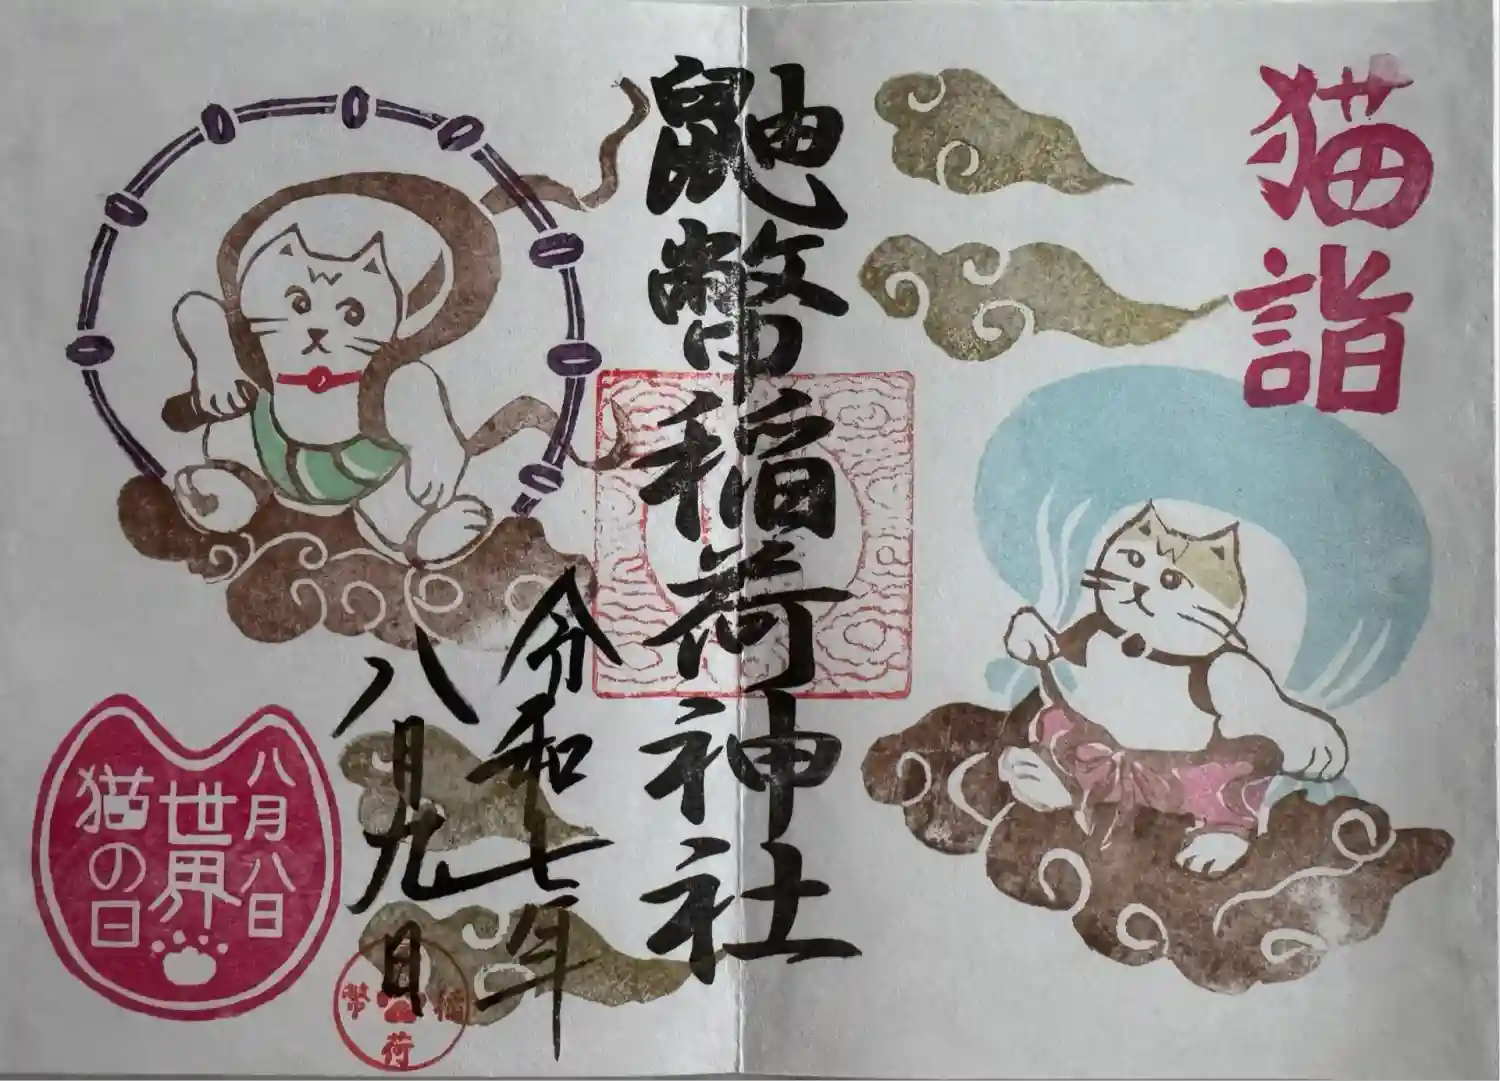 猫詣
鼬幣稲荷神社
令和七年
八月九日
八月八日
世界
猫の日
幣
稲
荷